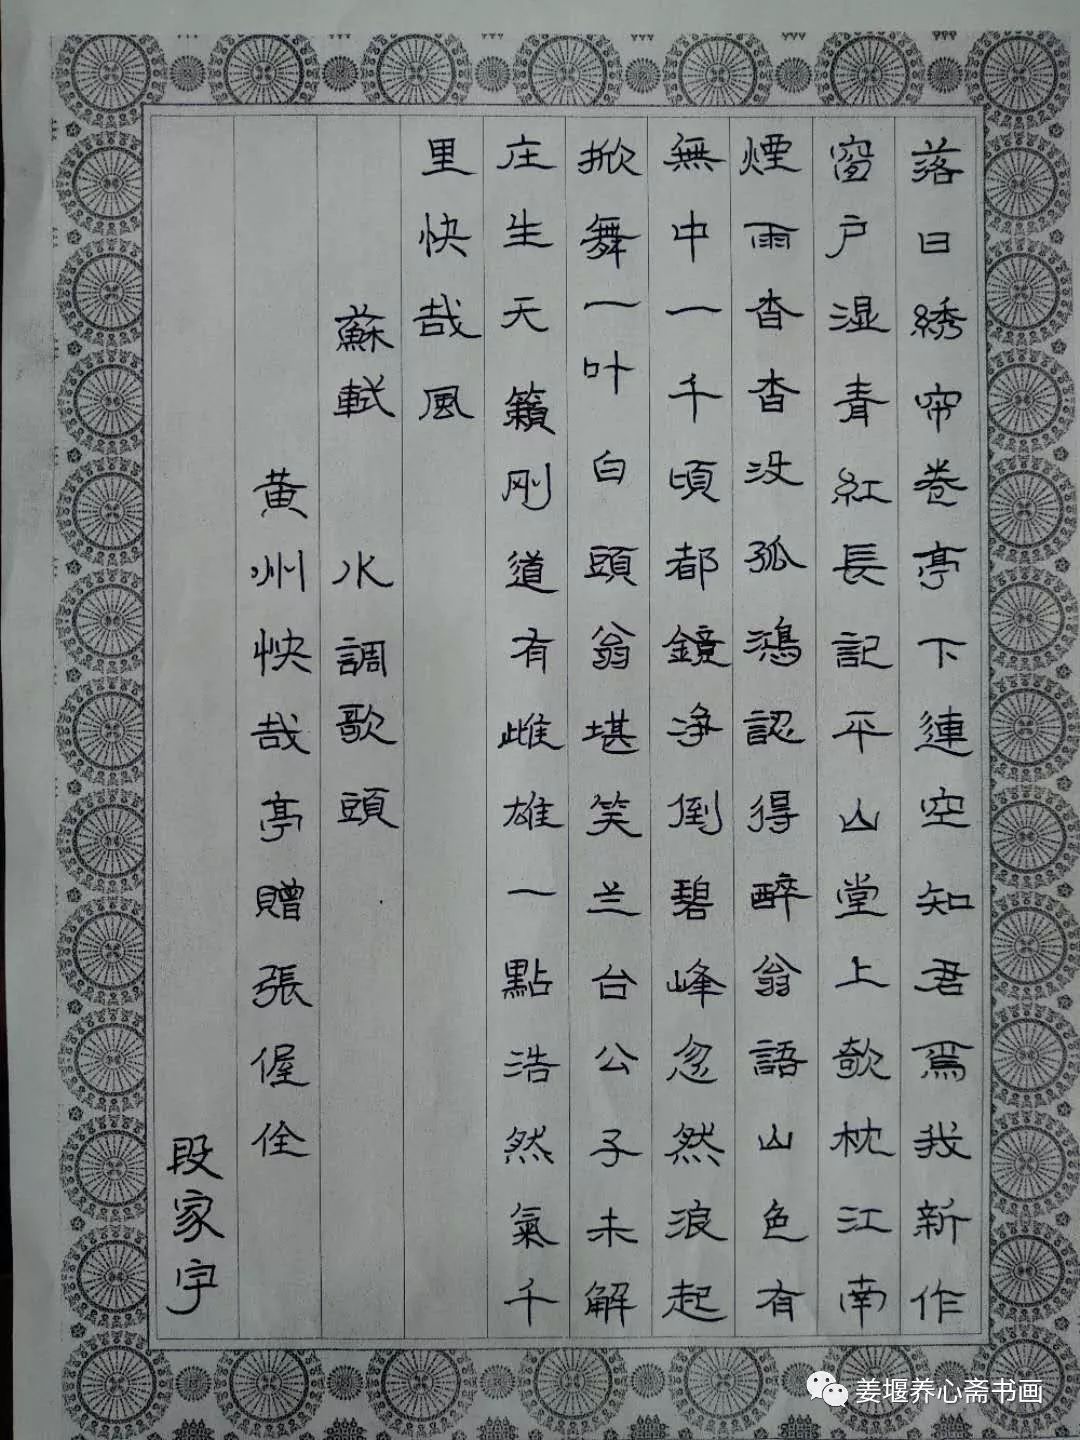 落日綉帘卷亭下連空知君爲我新作
窗户湿青紅長記平山堂上欹枕江南
煙雨杳杳没孤鴻認得醉翁語山色有
無中一千頃都鏡净倒碧峰忽然浪起
掀舞一叶白頭翁堪笑兰台公子未解
庄生天籟刚道有雌雄一點浩然氣千
里快哉風
蘇軾 水調歌頭
黄州快哉亭贈張偓佺
段家宇
姜堰养心斋书画